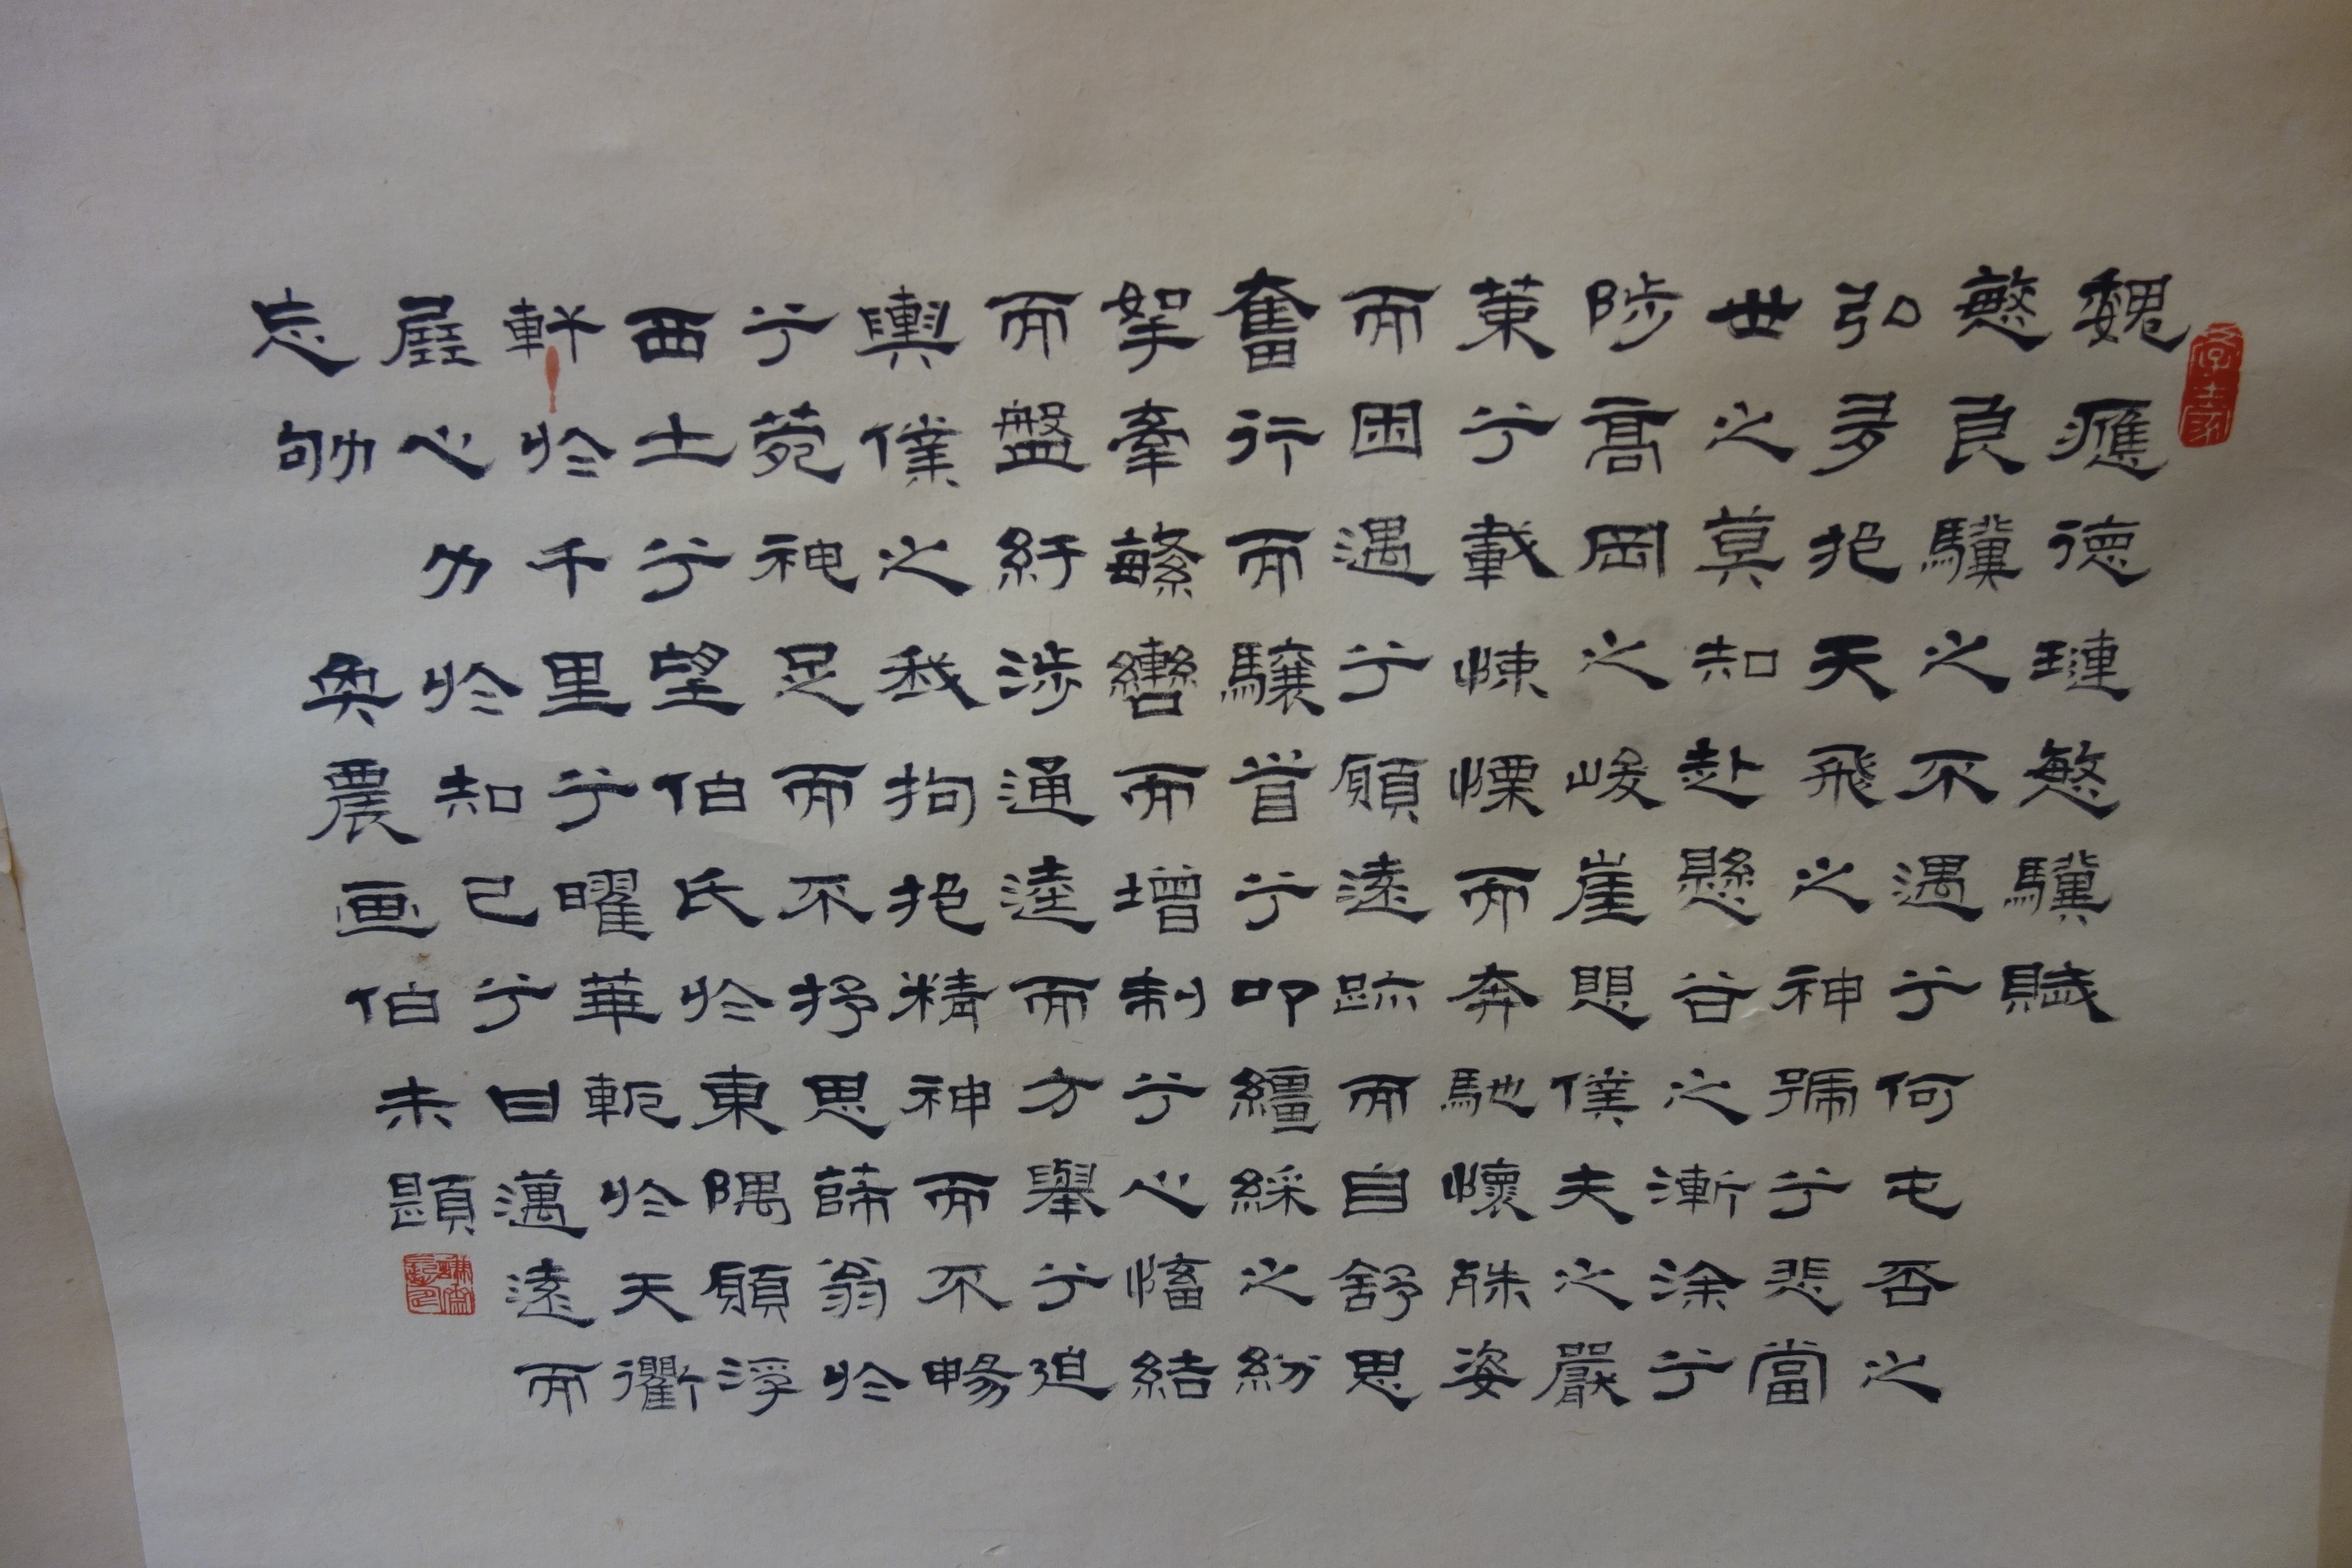 魏應德璉愍驥賦
愍良驥之不遇兮何屯否之
弘多抱天飛之神號兮悲當
世之莫知赴懸谷之漸涂兮
陟高岡之峻崖愳僕夫之嚴
策兮載悚慄而奔馳懷殊姿
而困遇兮願遠跡而自舒思
奮行而驤首兮叩繮綵之紛
挐牽繁轡而增制兮心慉結
而盤紆涉通逵而方舉兮迫
輿僕之我拘抱精神而不暢
兮菀神足而不抒思薛翁於
西土兮望伯氏於東隅願浮
軒於千里兮曜華軛於天衢
展心力於知己兮甘邁遠而
忘劬 奐農画伯未題